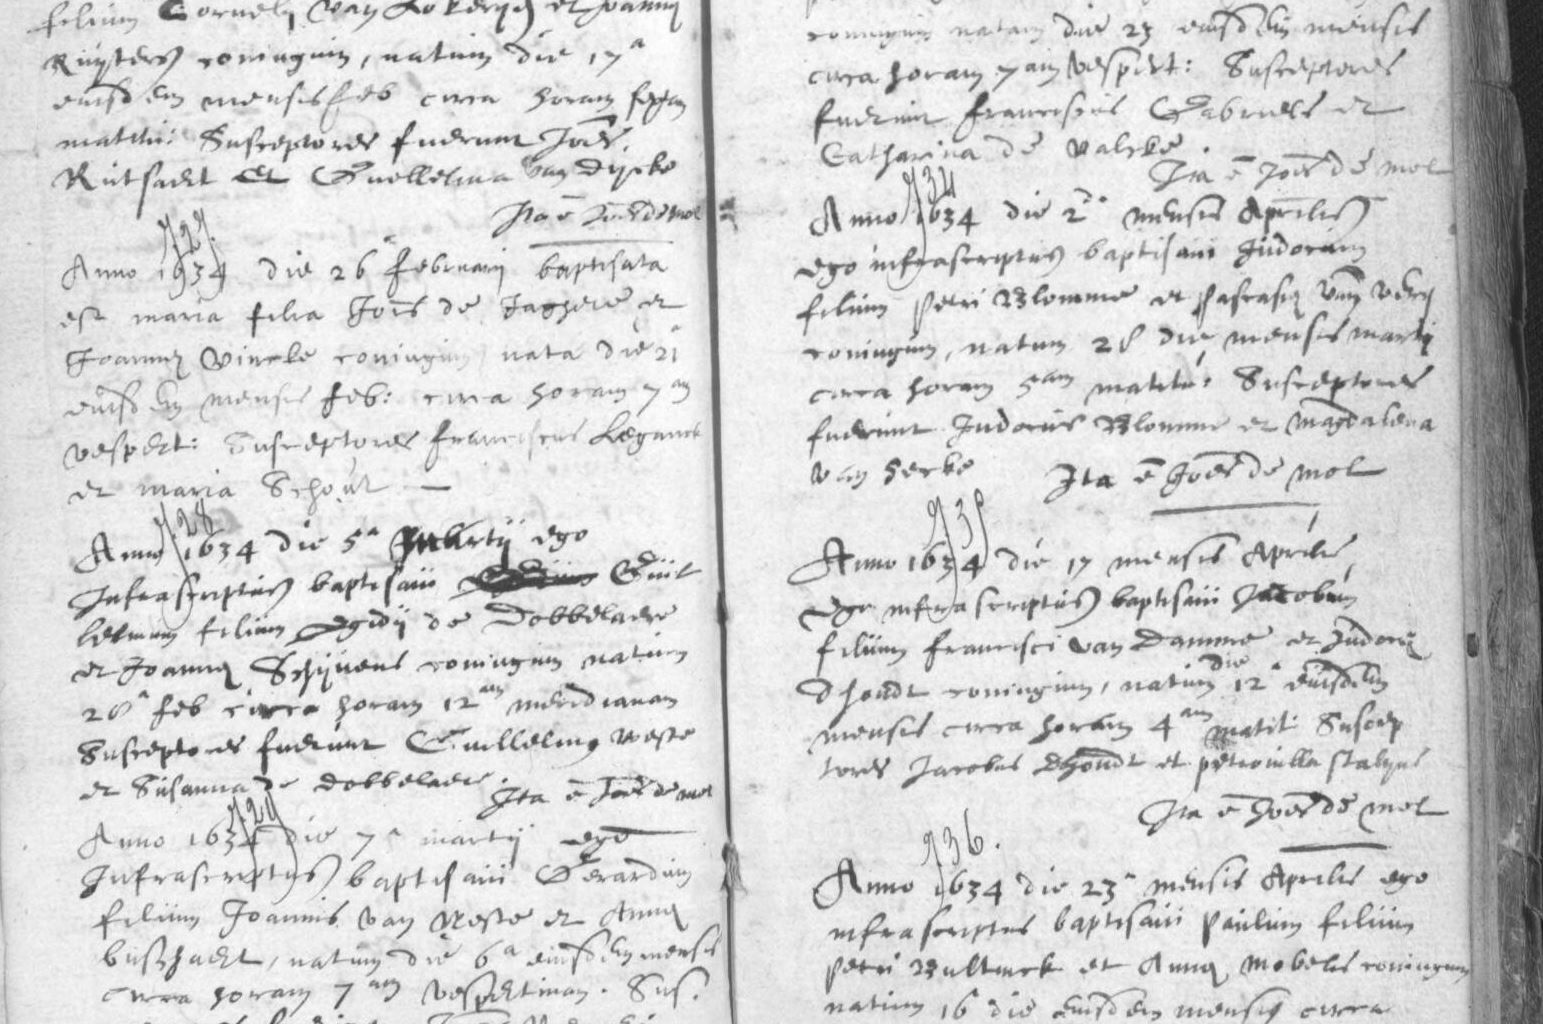 filium Cornely van Lokeren et Joannę
Ruÿters coniugum, natum die 17a
eiusdem mensis feb circa horam septam
matuti: Susceptores fuerunt Joēs
Rutsaert et Guellelma van Dÿcke
Ita ē Joēs de mol
927.
Anno 1634 die 26a februarij baptisata
est maria filia Joīs de Jaghere et
Joannę Vincke coniugum nata die 21a
eiusdem mensis feb: circa horam 7am
vespert: Susceptores franciscus Leganck
et maria Schout —
928
Anno 1634 die 5a Martij ego
Infrascriptus baptisavi Guil
lelmum filium Egidij de Dobbelaere
et Joannę Schÿvens coniugum natum
28a feb circa horam 12am meridianam
Susceptores fuerunt Guillelmus weste
et Susanna de dobbelaere
Ita ē Joēs de mol
929
Anno 1634 die 7a martij ego
Infrascriptus baptisavi Gerardum
filium Joannis van Neste et Annę
busschaert, natum die 6a eiusdem mensis
circa horam 7am vespertinam. Sus.
coniugum natam die 23 eiusdem mensis
circa horam 7am vespert: Susceptores
fuerunt franciscus Gabriels et
Catharina de valcke
Ita ē Joēs de mol
934
Anno 1634 die 2a mensis Aprilis
ego infrascriptus baptisavi Judocum
filium Petri Blomme et Pascasię van
coniugum, natum 28 die mensis martij
circa horam 5am matuti: Susceptores
fuerunt Judocus Blomme et Magdalena
van hecke
Ita ē Joēs de mol
935
Anno 1634 die 17 mensis Aprilis
Ego infrascriptus baptisavi Jacobum
filium francisci van Damme et Judocę
Dhondt coniugum, natum die 12a eiusdem
mensis circa horam 4am matut: Suscep
tores Jacobus Dhondt et petronilla stalÿns
Ita ē Joēs de mol
936.
Anno 1634 die 23a mensis Aprilis ego
infrascriptus baptisavi Paulum filium
Petri Bultinck et Annę Mobelis coniugum
natum 16 die eiusdem mensis circa